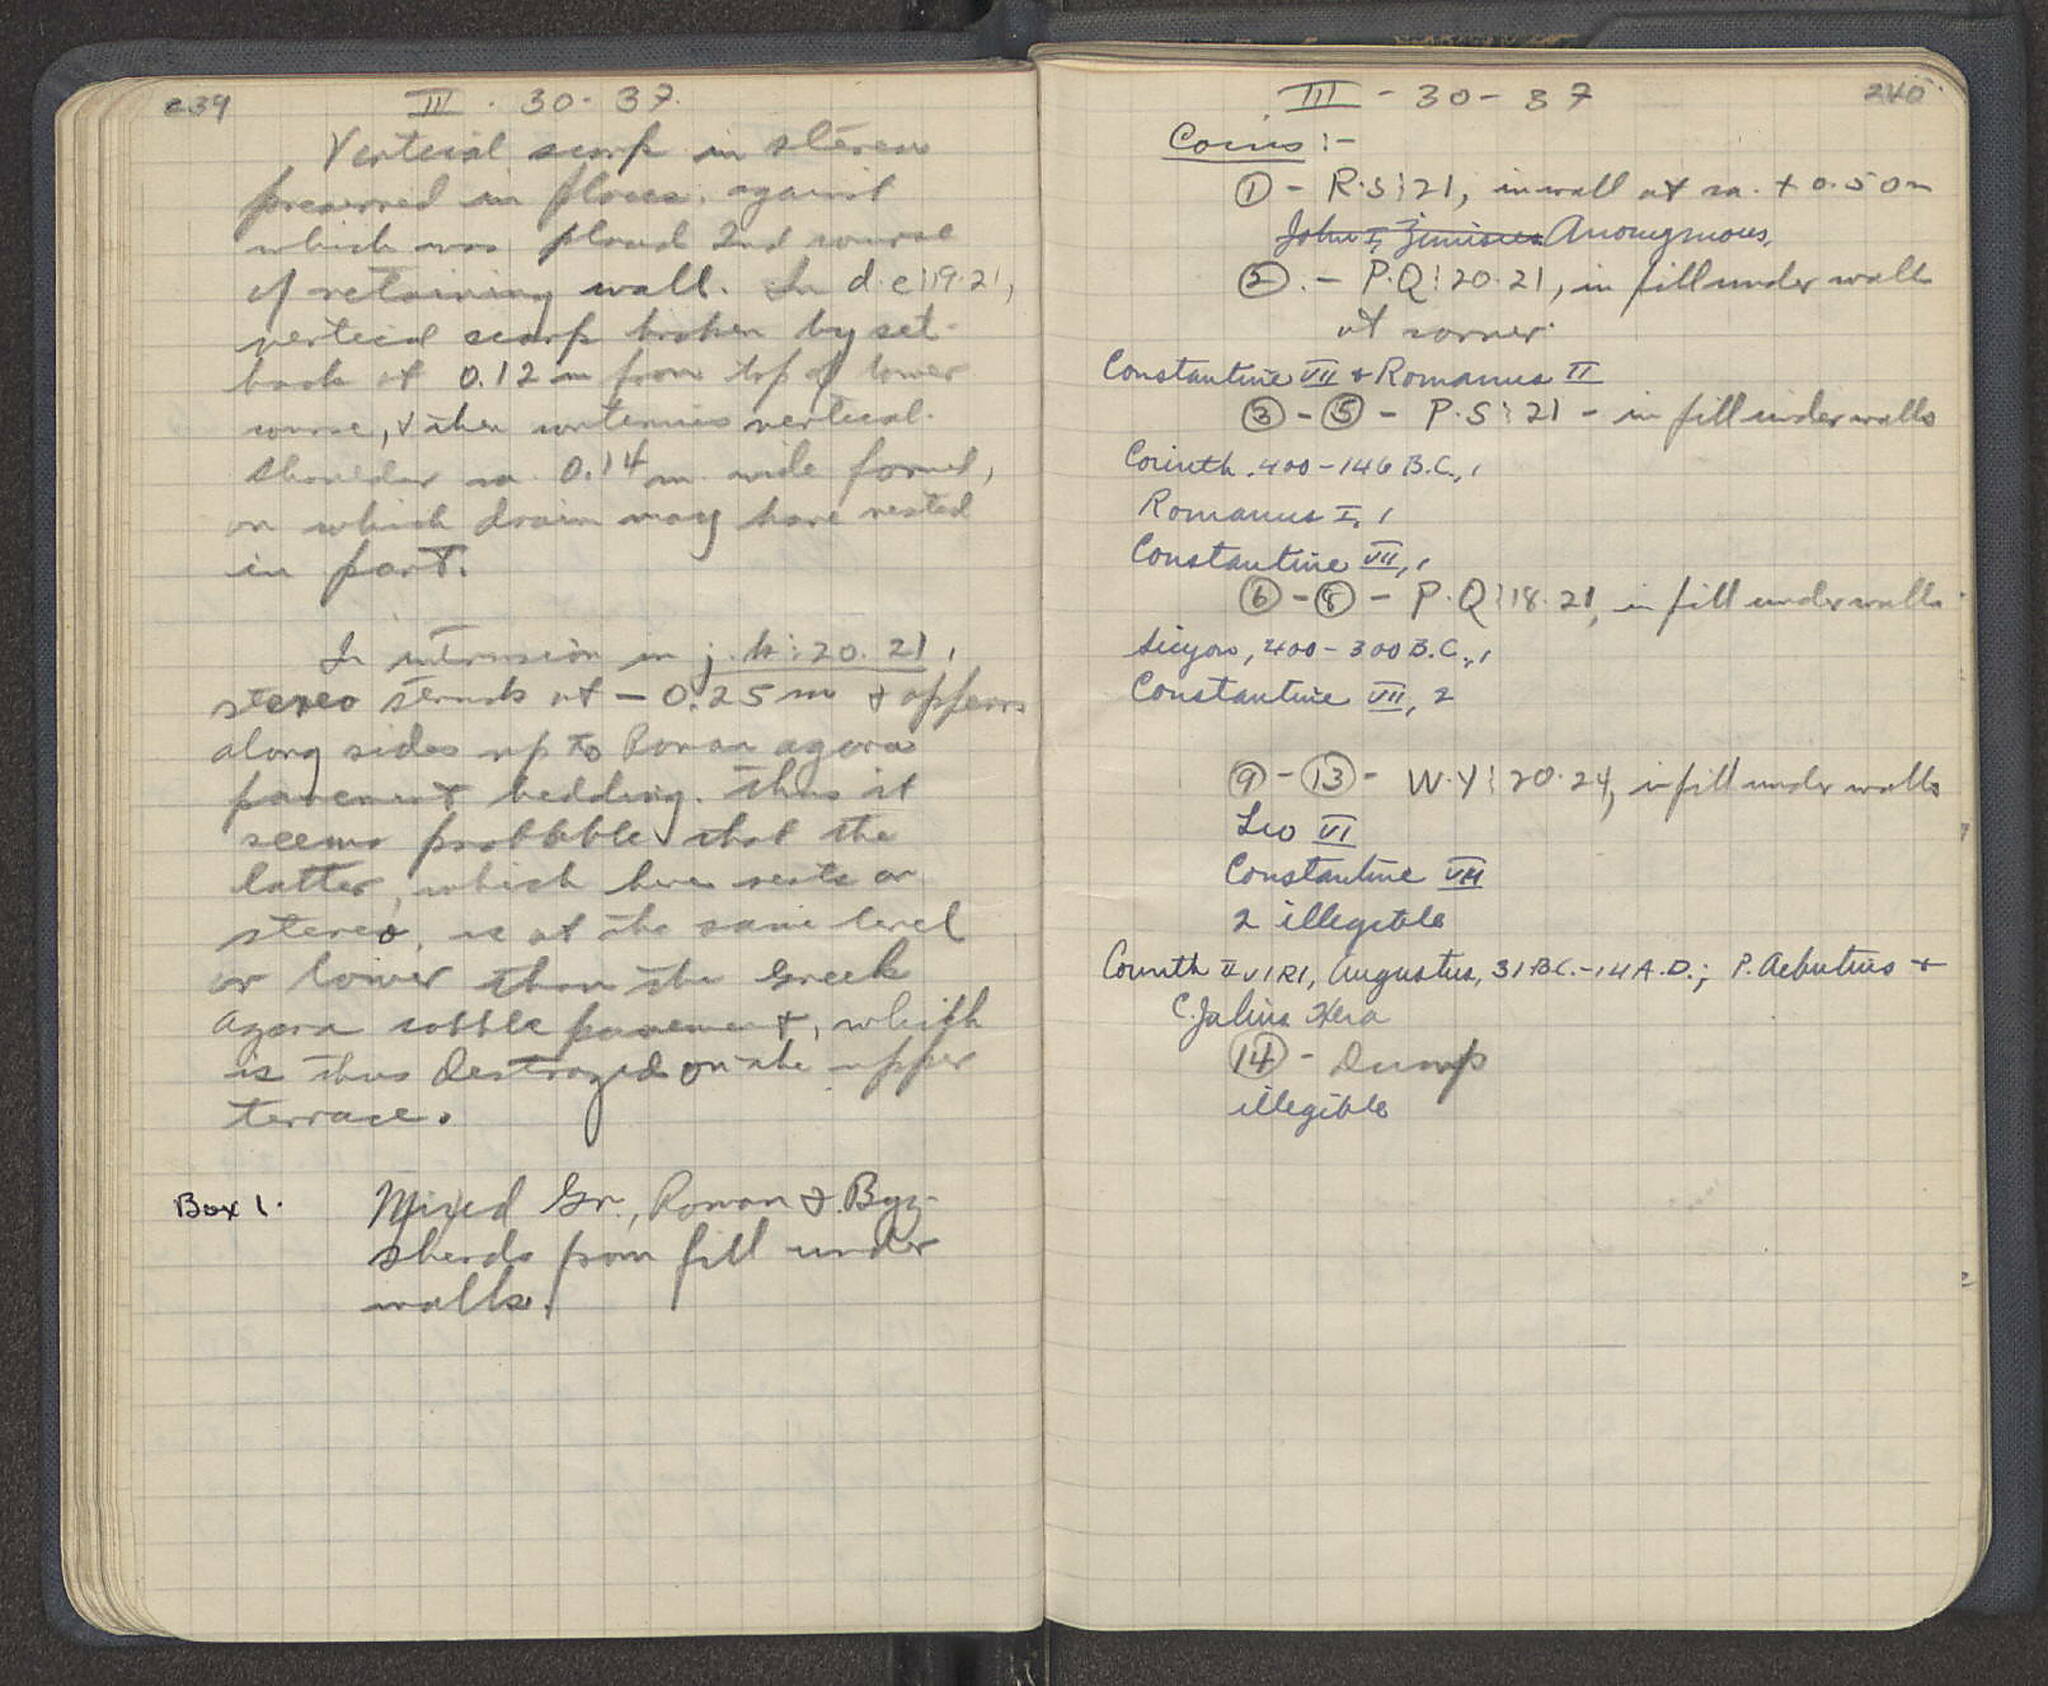 239
III · 30 - 37.
Vertical scarp in stereo
preserved in places, against
which was placed 2nd course
of retaining wall. In d·e:19·21,
vertical scarp broken by set-
back at 0.12 m from top of lower
course, & then continues vertical.
Shoulder ca. 0.14 m. wide formed,
on which drain may have rested
in part.
In intrusion in j·k:20·21,
stereo struck at - 0.25 m & appears
along sides up to Roman agora
pavement bedding. Thus it
seems probbble that the
latter, which here rests on
stereo, is at the same level
or lower than the Greek
Agora cobble pavement, which
is thus destroyed on the upper
terrace.
Box 1. Mixed Gr., Roman & Byz.
sherds from fill under
walls.
III - 30 - 37
240
Coins :-
① - R·S:21, in wall at ca. + 0.50 m
John I, Zimisces Anonymous,
②. - P·Q:20·21, in fill under wall
at corner.
Constantine VII & Romanus II
③ - ⑤ - P·S:21 - in fill under walls
Corinth, 400-146 B.C., 1
Romanus I, 1
Constantine VII, 1
⑥ - ⑧ - P·Q:18·21, in fill under walls
Sicyon, 400-300 B.C., 1
Constantine VII, 2
⑨ - ⑬ - W·Y:20·24, in fill under walls
Leo VI
Constantine VII
2 illegible
Corinth II VIRI, Augustus, 31 B.C.-14 A.D.; P. Aebutius +
C. Julius Hera
⑭ - Dump
illegible